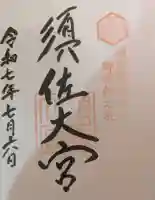 須佐大宮
令和七年七月六日